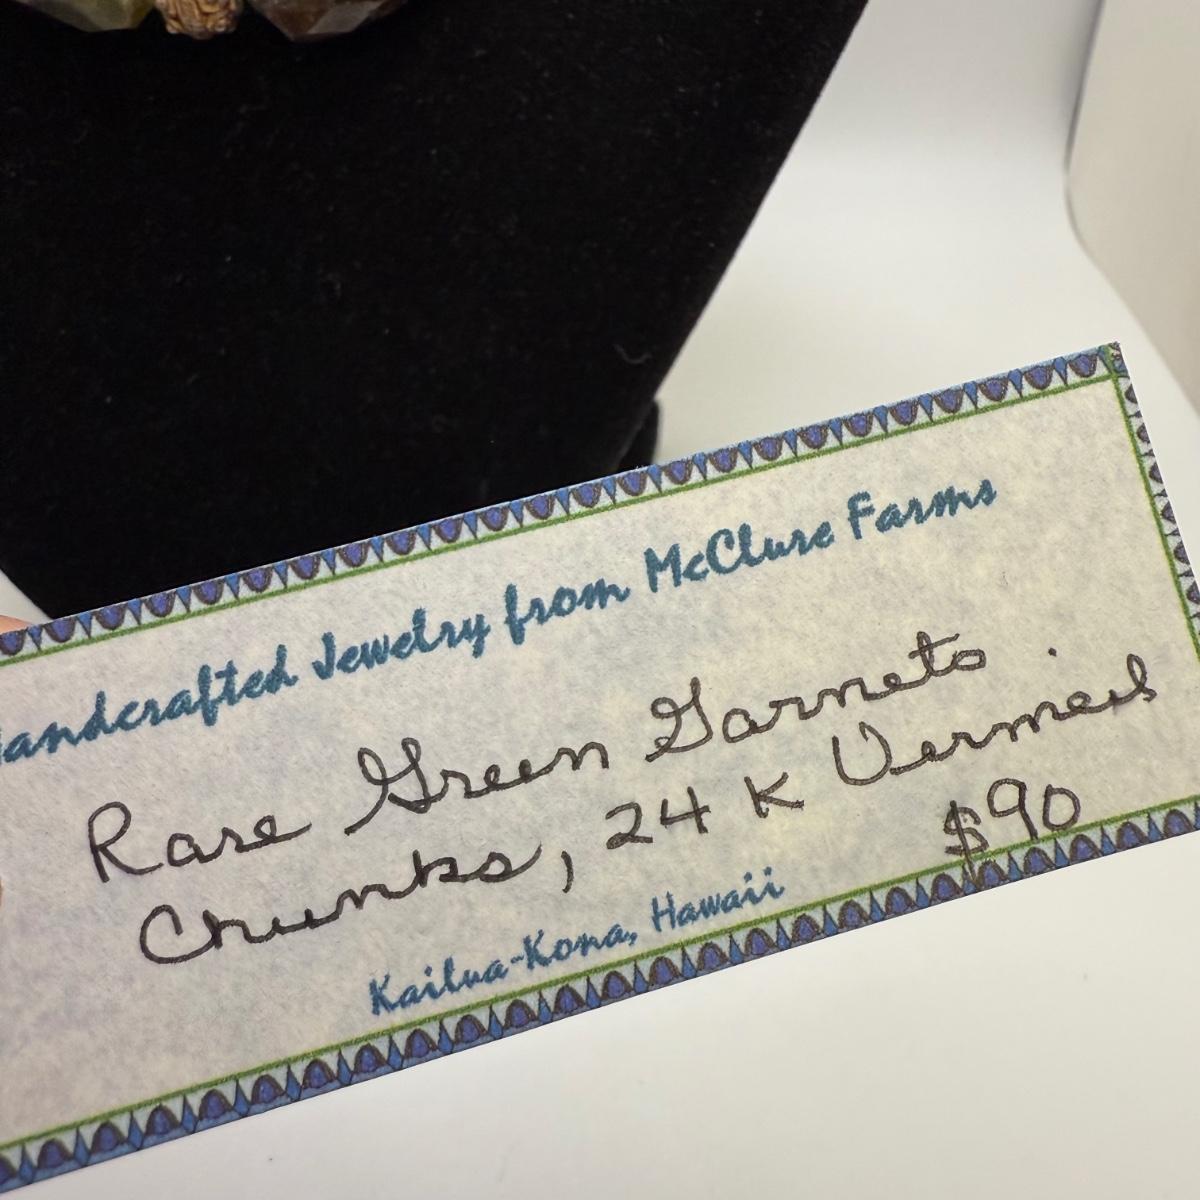 Handcrafted Jewelry from McClure Farms
Rare Green Garnets
Chunks, 24 K Vermeil
$90
Kailua-Kona, Hawaii